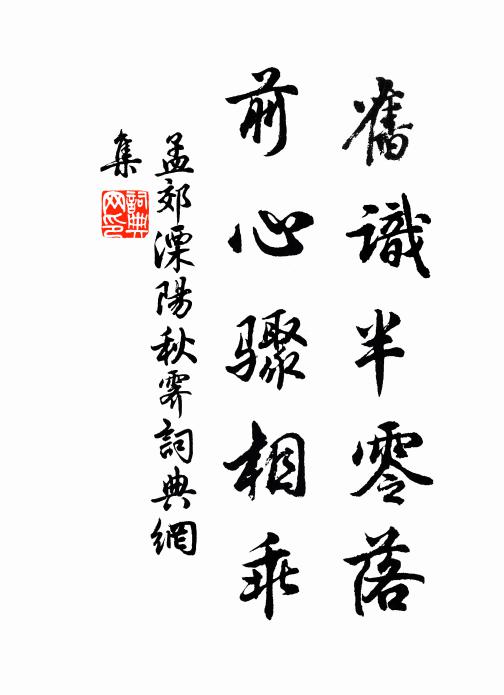 舊識半零落
前心驟相乖
孟郊溧陽秋霽詞典網
集
詞典网印